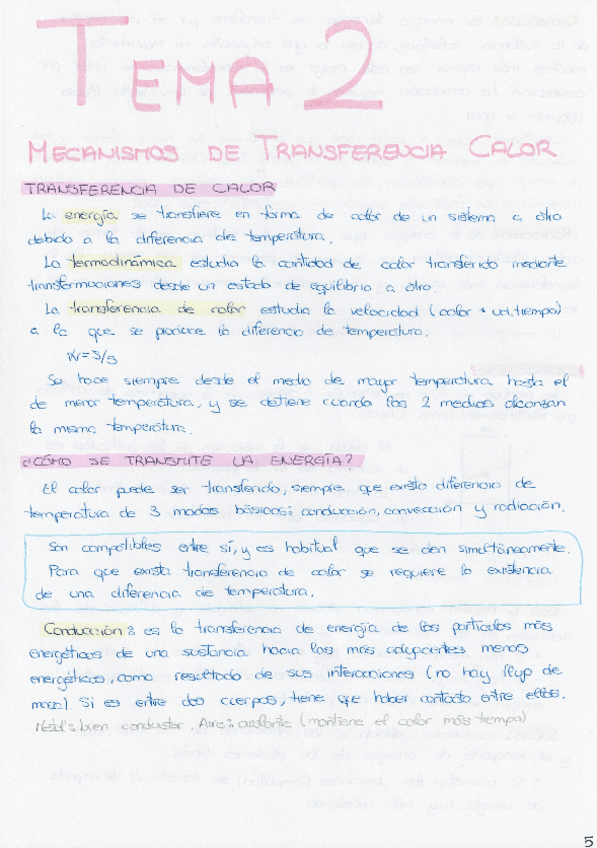 TEMA 2
MECANISMOS DE TRANSFERENCIA CALOR
TRANSFERENCIA DE CALOR
La energía se transfiere en forma de calor de un sistema a otro
debido a la diferencia de temperatura.
La termodinámica estudia la cantidad de calor transferido mediante
transformaciones desde un estado de equilibrio a otro.
La transferencia de calor estudia la velocidad (calor * ud.tiempo)
a la que se produce la diferencia de temperatura.
W=J/s
Se hace siempre desde el medio de mayor temperatura hasta el
de menor temperatura, y se detiene cuando los 2 medios alcanzan
la misma temperatura.
¿CÓMO SE TRANSMITE LA ENERGÍA?
El calor puede ser transferido, siempre que exista diferencia de
temperatura de 3 modos básicos: conducción, convección y radiación.
Son compatibles entre sí, y es habitual que se den simultáneamente.
Para que exista transferencia de calor se requiere la existencia
de una diferencia de temperatura.
Conducción: es la transferencia de energía de las partículas más
energéticas de una sustancia hacia las más adyacentes menos
energéticas, como resultado de sus interacciones (no hay flujo de
masa) Si es entre dos cuerpos, tiene que haber contacto entre ellos.
Metal: buen conductor. Aire: aislante (mantiene el calor más tiempo)
5